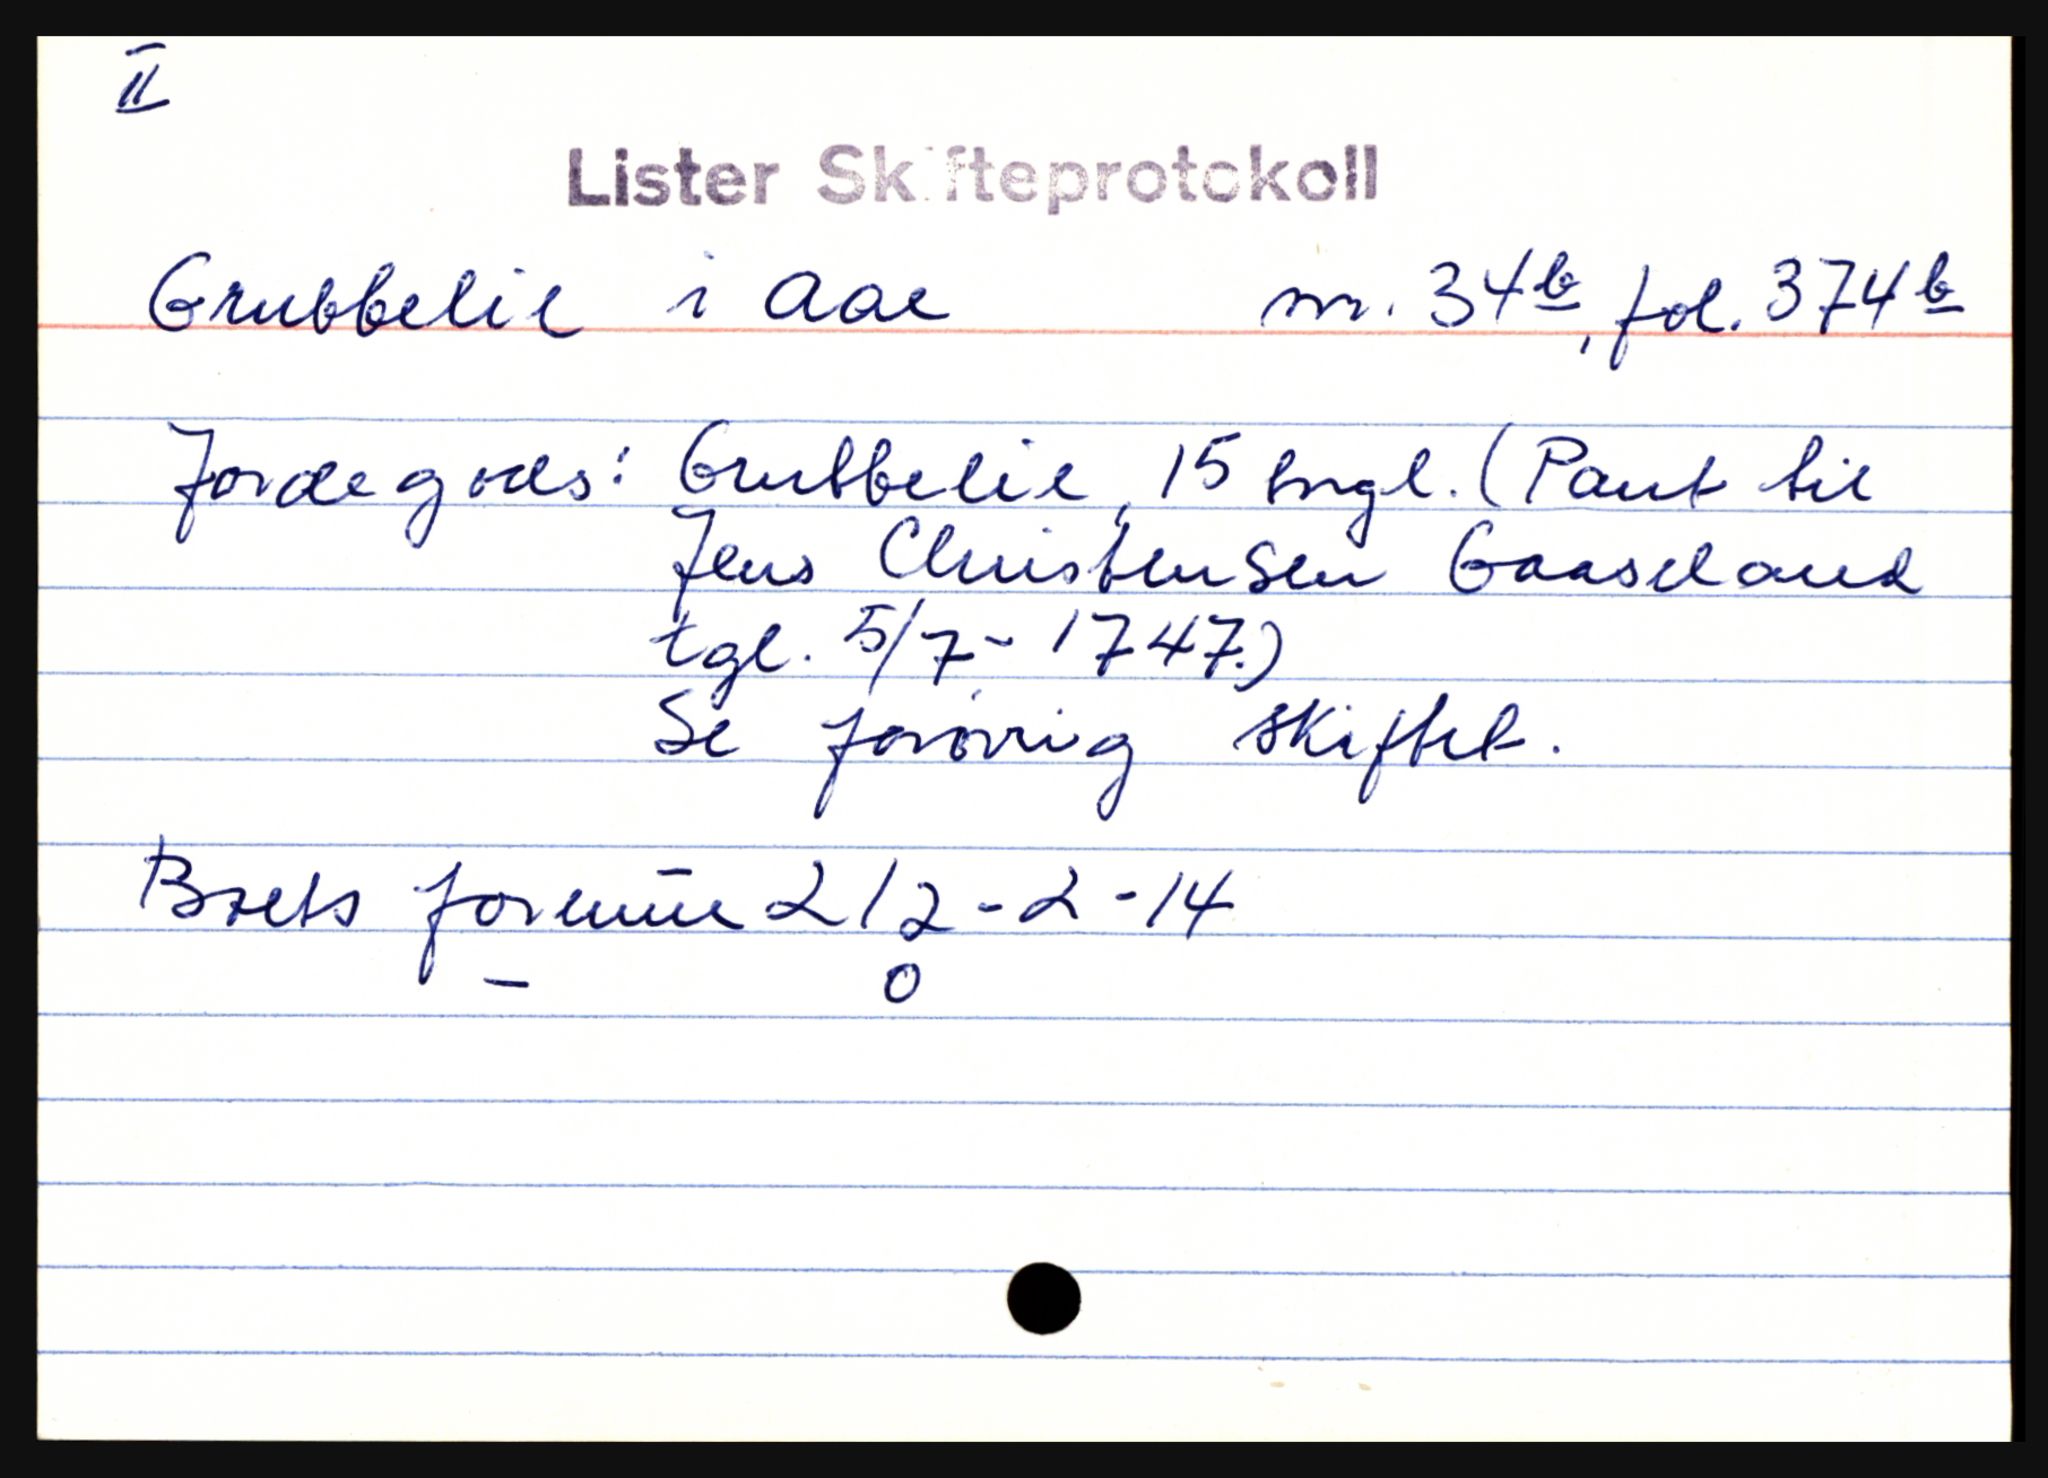 II
Lister Skifteprotokoll
Grubbelie i Aae nr. 34b, fol. 374b
Jordegods: Grubbelie, 15 engl. (Pant til
Jens Christensen Gaaseland
tgl. 5/7 - 1747.)
Se forøvrig skiftet.
Boets formue 212 - 2 - 14
- 0